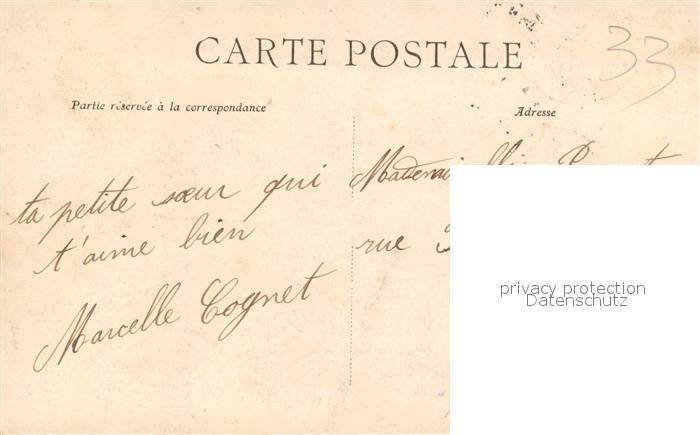 CARTE POSTALE
33
Partie réservée à la correspondance
Adresse
ta petite sœur qui
t'aime bien
Marcelle Cognet
rue
privacy protection
Datenschutz